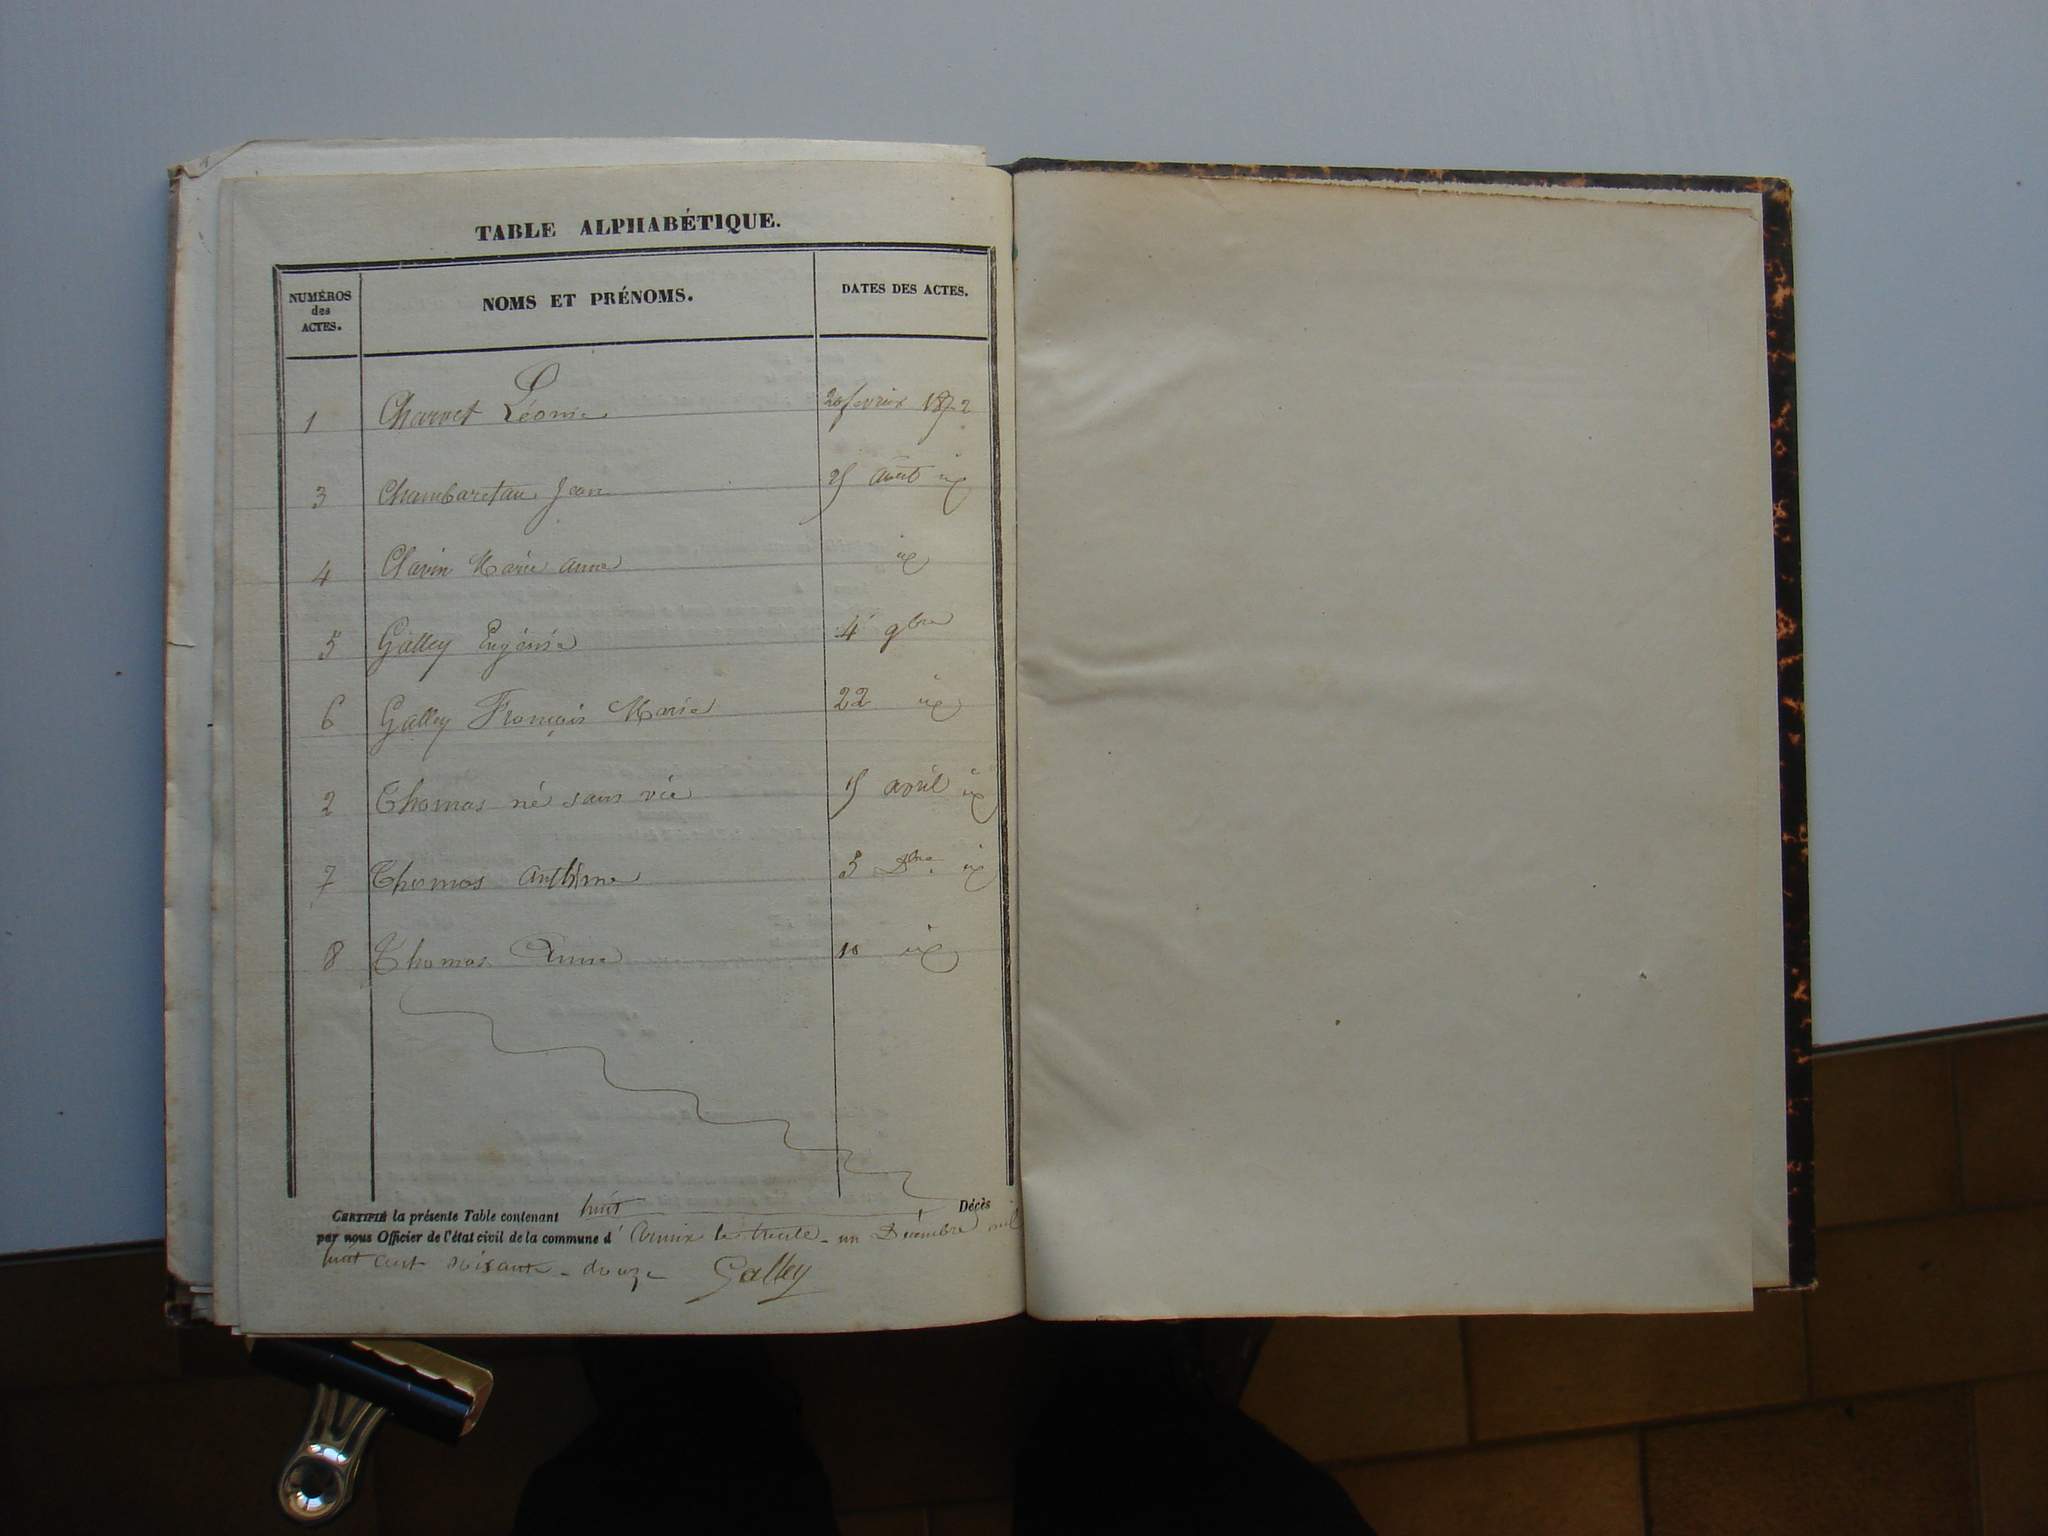 TABLE ALPHABÉTIQUE.
NUMÉROS des ACTES. NOMS ET PRÉNOMS. DATES DES ACTES.
1 Charvet Léonie 20 fevrier 1872
3 Chambaretau Jean août id
4 Clavin Marie anne id
5 Galley Eugénie 4 9bre
6 Galley François Marie 22 id
2 Thomas né sans vie 15 avril id
7 Thomas anthime 5 Dbre id
8 Thomas Anne 10 id
CERTIFIÉ la présente Table contenant huit Décès
par nous Officier de l'état civil de la commune d' le trente-un Décembre mil
huit cent soixante-douze Galley